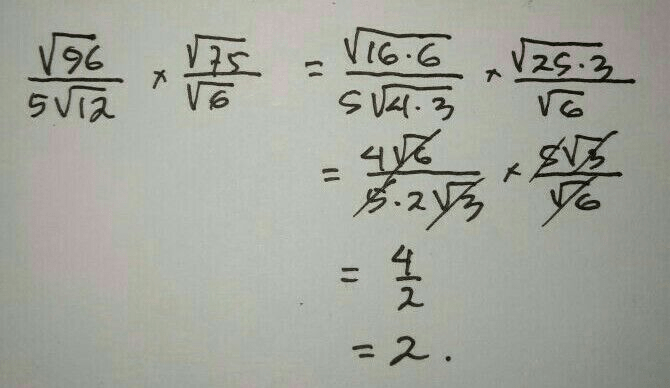 √96 / 5√12 × √75 / √6 = √16·6 / 5√4·3 × √25·3 / √6
= 4√6 / 5·2√3 × 5√3 / √6
= 4 / 2
= 2.